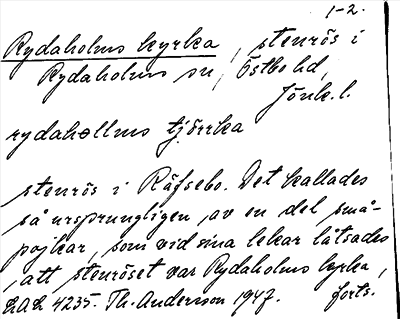 1-2.
Rydaholms kyrka, stenrös i
Rydaholms sn, Östbo hd,
Jönk. l.
rydahollms tjörrka
stenrös i Räfsebo. Det kallades
så ursprungligen, av en del små-
pojkar, som vid sina lekar låtsades
, att stenröset var Rydaholms kyrka,
LAL 4235. Th. Andersson 1947. forts.